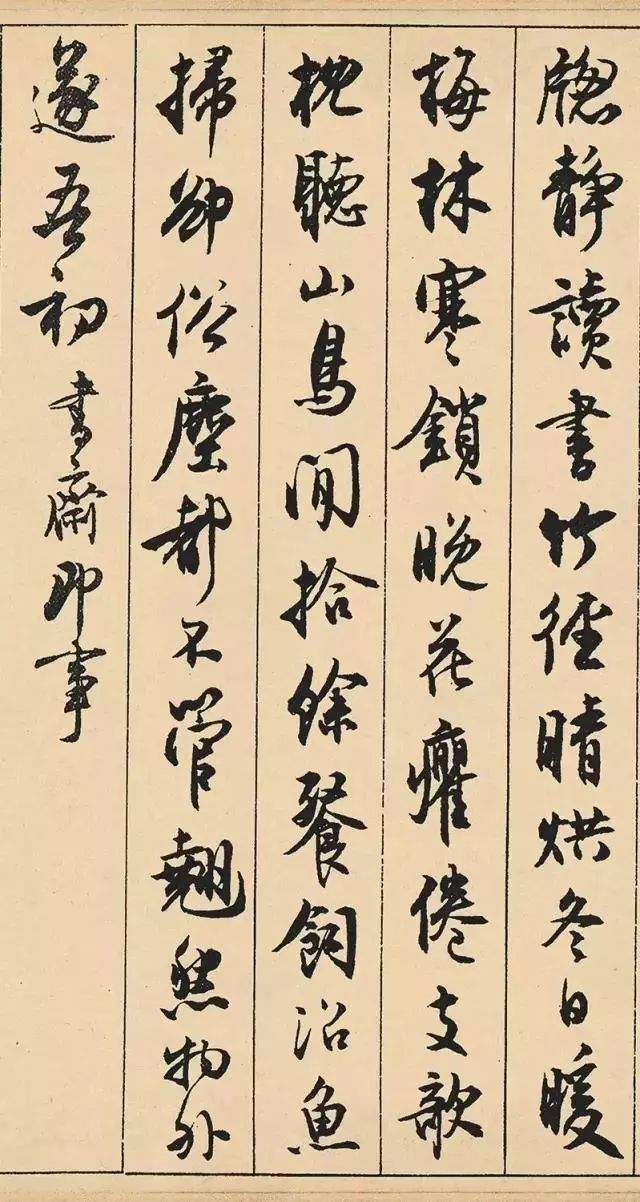 牕靜讀書竹徑晴烘冬日暖
梅林寒鎖晚花癯倦支欹
枕聽山鳥閒拾餘餐飼沼魚
掃卻俗塵都不管翹然物外
遂吾初 書齋即事